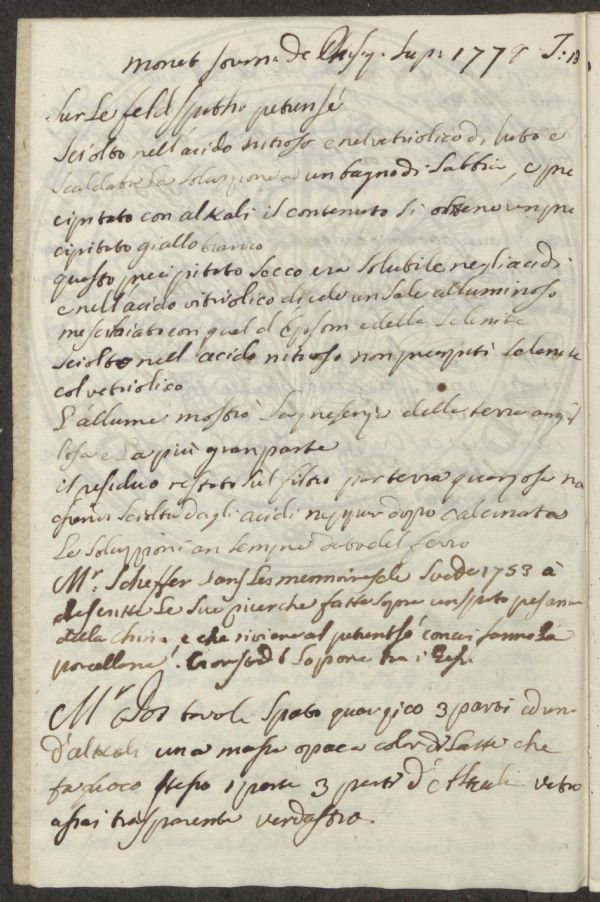 monet Journ: de Phisq. Sup: 1779 T: 13
Sur Le feld spath petunsé
Sciolto nell'acido nitroso e nel vetriolico di tutto e
Scaldata La soluzione a un bagno di Sabbia, e pre
cipitato con alkali il contenuto Si ottene un pre
cipitato giallo bianco
questo precipitato Secco era Solubile negli acidi
e nell'acido vitriolico diede un Sale alluminoso
meschiato con quel d'Epsom e della Selenite
Sciolto nell'acido nitroso non precipitò Selenite
col vetriolico
L'allume mostrò La presenza della terra argil
losa e La più gran parte
il residuo restato Sul filtro per terra quarzosa na
Sciolta dagli acidi neppur dopo calcinata
Le Soluzzioni an Sempre dato del ferro
Mr. Scheffer dans Les memoires de Suede 1753 à
descritte Le Sue ricerche fatte Sopra un Spato pesante
della China e che riviene al petuntsé con cui fanno La
porcellana. Cronstedt Lo pone tra i
Mr tavole Spato quarzico 3 parti ed una
d'alkali una massa opaca color di Latte che
fa fuoco Stesso 1 parte 3 parti d'alkali vetro
assai trasparente verdastro.